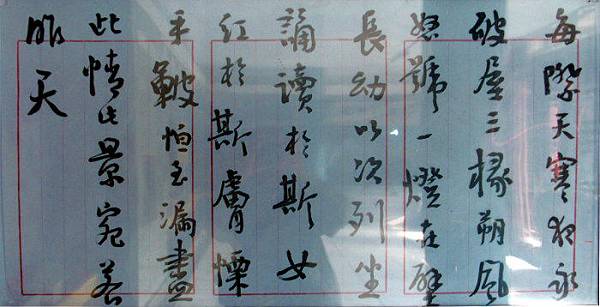 每際天寒夜永
破屋三椽朔風
怒號一燈在壁
長幼以次列坐
誦讀於斯女
紅於斯膚慄
手皸恒至漏盡
此情此景宛若
昨天